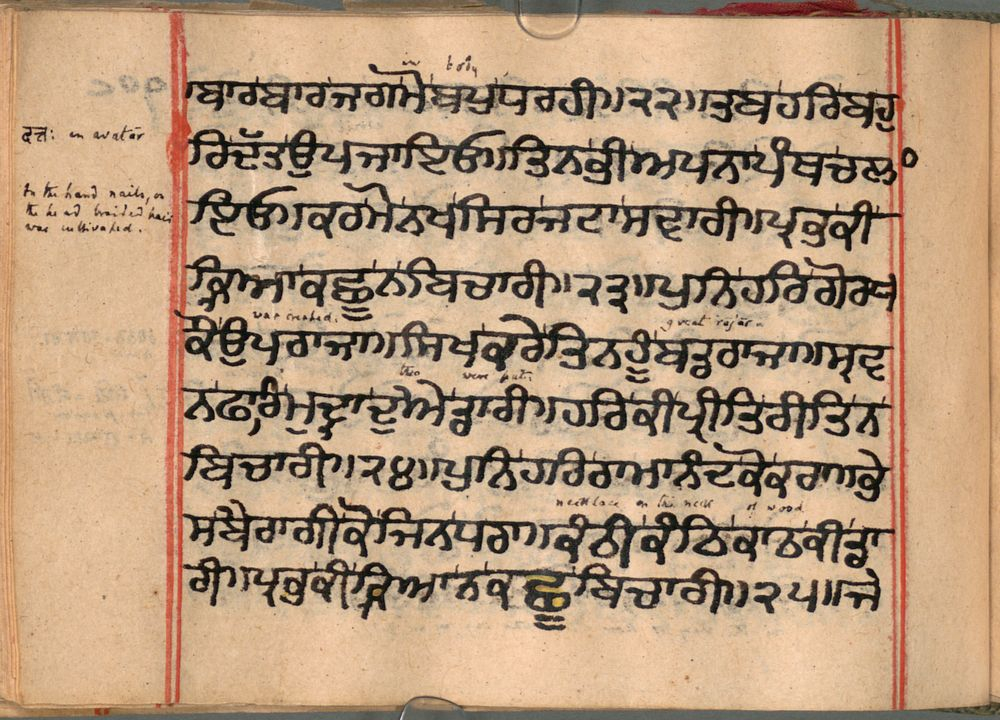 in body
ਬਾਰਬਾਰਜਗਮੈਬਪੁਪਰਹੀ॥੨੨॥ਤਬਹਰਿਬਹੁ
दत्तः an avatār
ਰਿਦੱਤਉਪਜਾਇਓ॥ਤਿਨਭੀਅਪਨਾਪੰਥਚਲਾ
On the hand nails, on
the head braided hair
was cultivated.
ਇਓ॥ਕਰਮੈਨਖਸਿਰਜਟਾਸਵਾਰੀ॥ਪ੍ਰਭੁਕੀ
ਕ੍ਰਿਆਕਛੂਨਬਿਚਾਰੀ॥੨੩॥ਪੁਨਿਹਰਿਗੋਰਖ
was created. great rājās
ਕੋਉਪਰਾਜਾ॥ਸਿਖਕਰੇਤਿਨਹੂੰਬਡਰਾਜਾ॥ਸ੍ਰਵ
two were put
ਨਫਾਰਿਮੁਦ੍ਰਾਦੁਐਡਾਰੀ॥ਹਰਿਕੀਪ੍ਰੀਤਿਰੀਤਿਨ
ਬਿਚਾਰੀ॥੨੪॥ਪੁਨਿਹਰਿਰਾਮਾਨੰਦਕੋਕਰਾ॥ਭੇ
necklace on the neck of wood
ਸਬੈਰਾਗੀਕੋਜਿਨਧਰਾ॥ਕੰਠੀਕੰਠਿਕਾਠਕੀਡਾ
ਰੀ॥ਪ੍ਰਭੁਕੀਕ੍ਰਿਆਨਕਛੂਬਿਚਾਰੀ॥੨੫॥ਜੇ